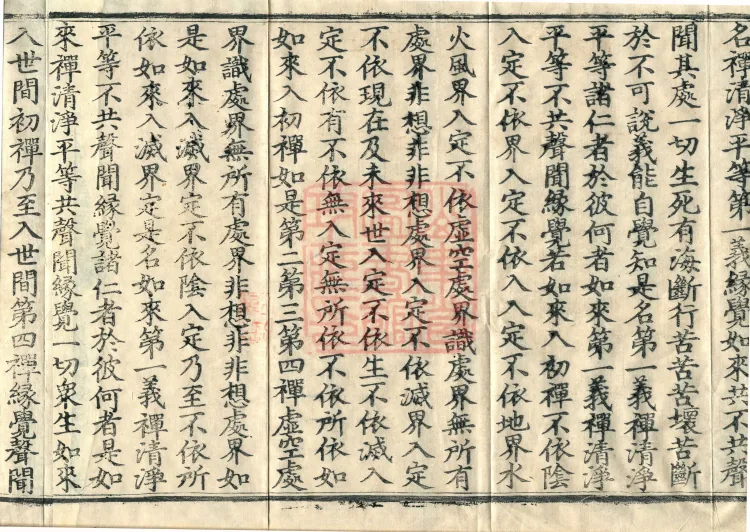 名禪清淨平等第一義緣覺如來共不共聲
聞其處一切生死有海斷行苦苦苦壞苦斷
於不可說義能自覺知是名第一義禪清淨
平等諸仁者於彼何者如來第一義禪清淨
平等不共聲聞緣覺若如來入初禪不依陰
入定不依界入定不依入入定不依地界水
火風界入定不依虛空處界識處界無所有
處界非想非非想處界入定不依滅界入定
不依現在及未來世入定不依生不依滅入
定不依有不依無入定無所依不依所依如
如來入初禪如是第二第三第四禪虛空處
界識處界無所有處界非想非非想處界如
是如來入滅界定不依陰入定乃至不依所
依如來入滅界定是名如來第一義禪清淨
平等不共聲聞緣覺諸仁者於彼何者是如
來禪清淨平等共聲聞緣覺一切衆生如來
入世間初禪乃至入世間第四禪緣覺聲聞